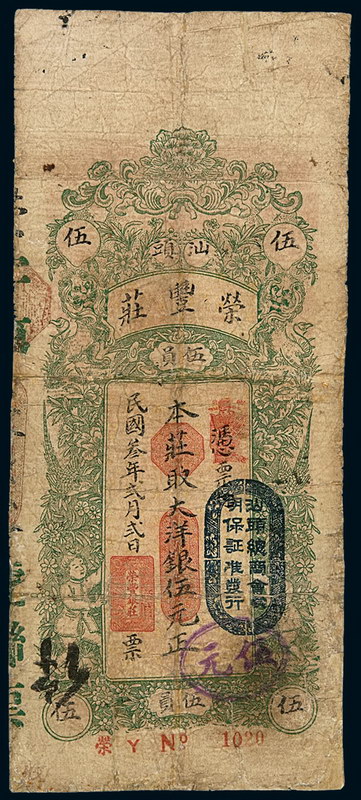 伍
伍
汕頭
榮豐莊
伍員
憑票
本莊取大洋銀伍元正
民國叁年弍月弍日
票
汕頭總商會
明保証准發行
伍元
伍員
伍
伍
榮 Y Nº 1020